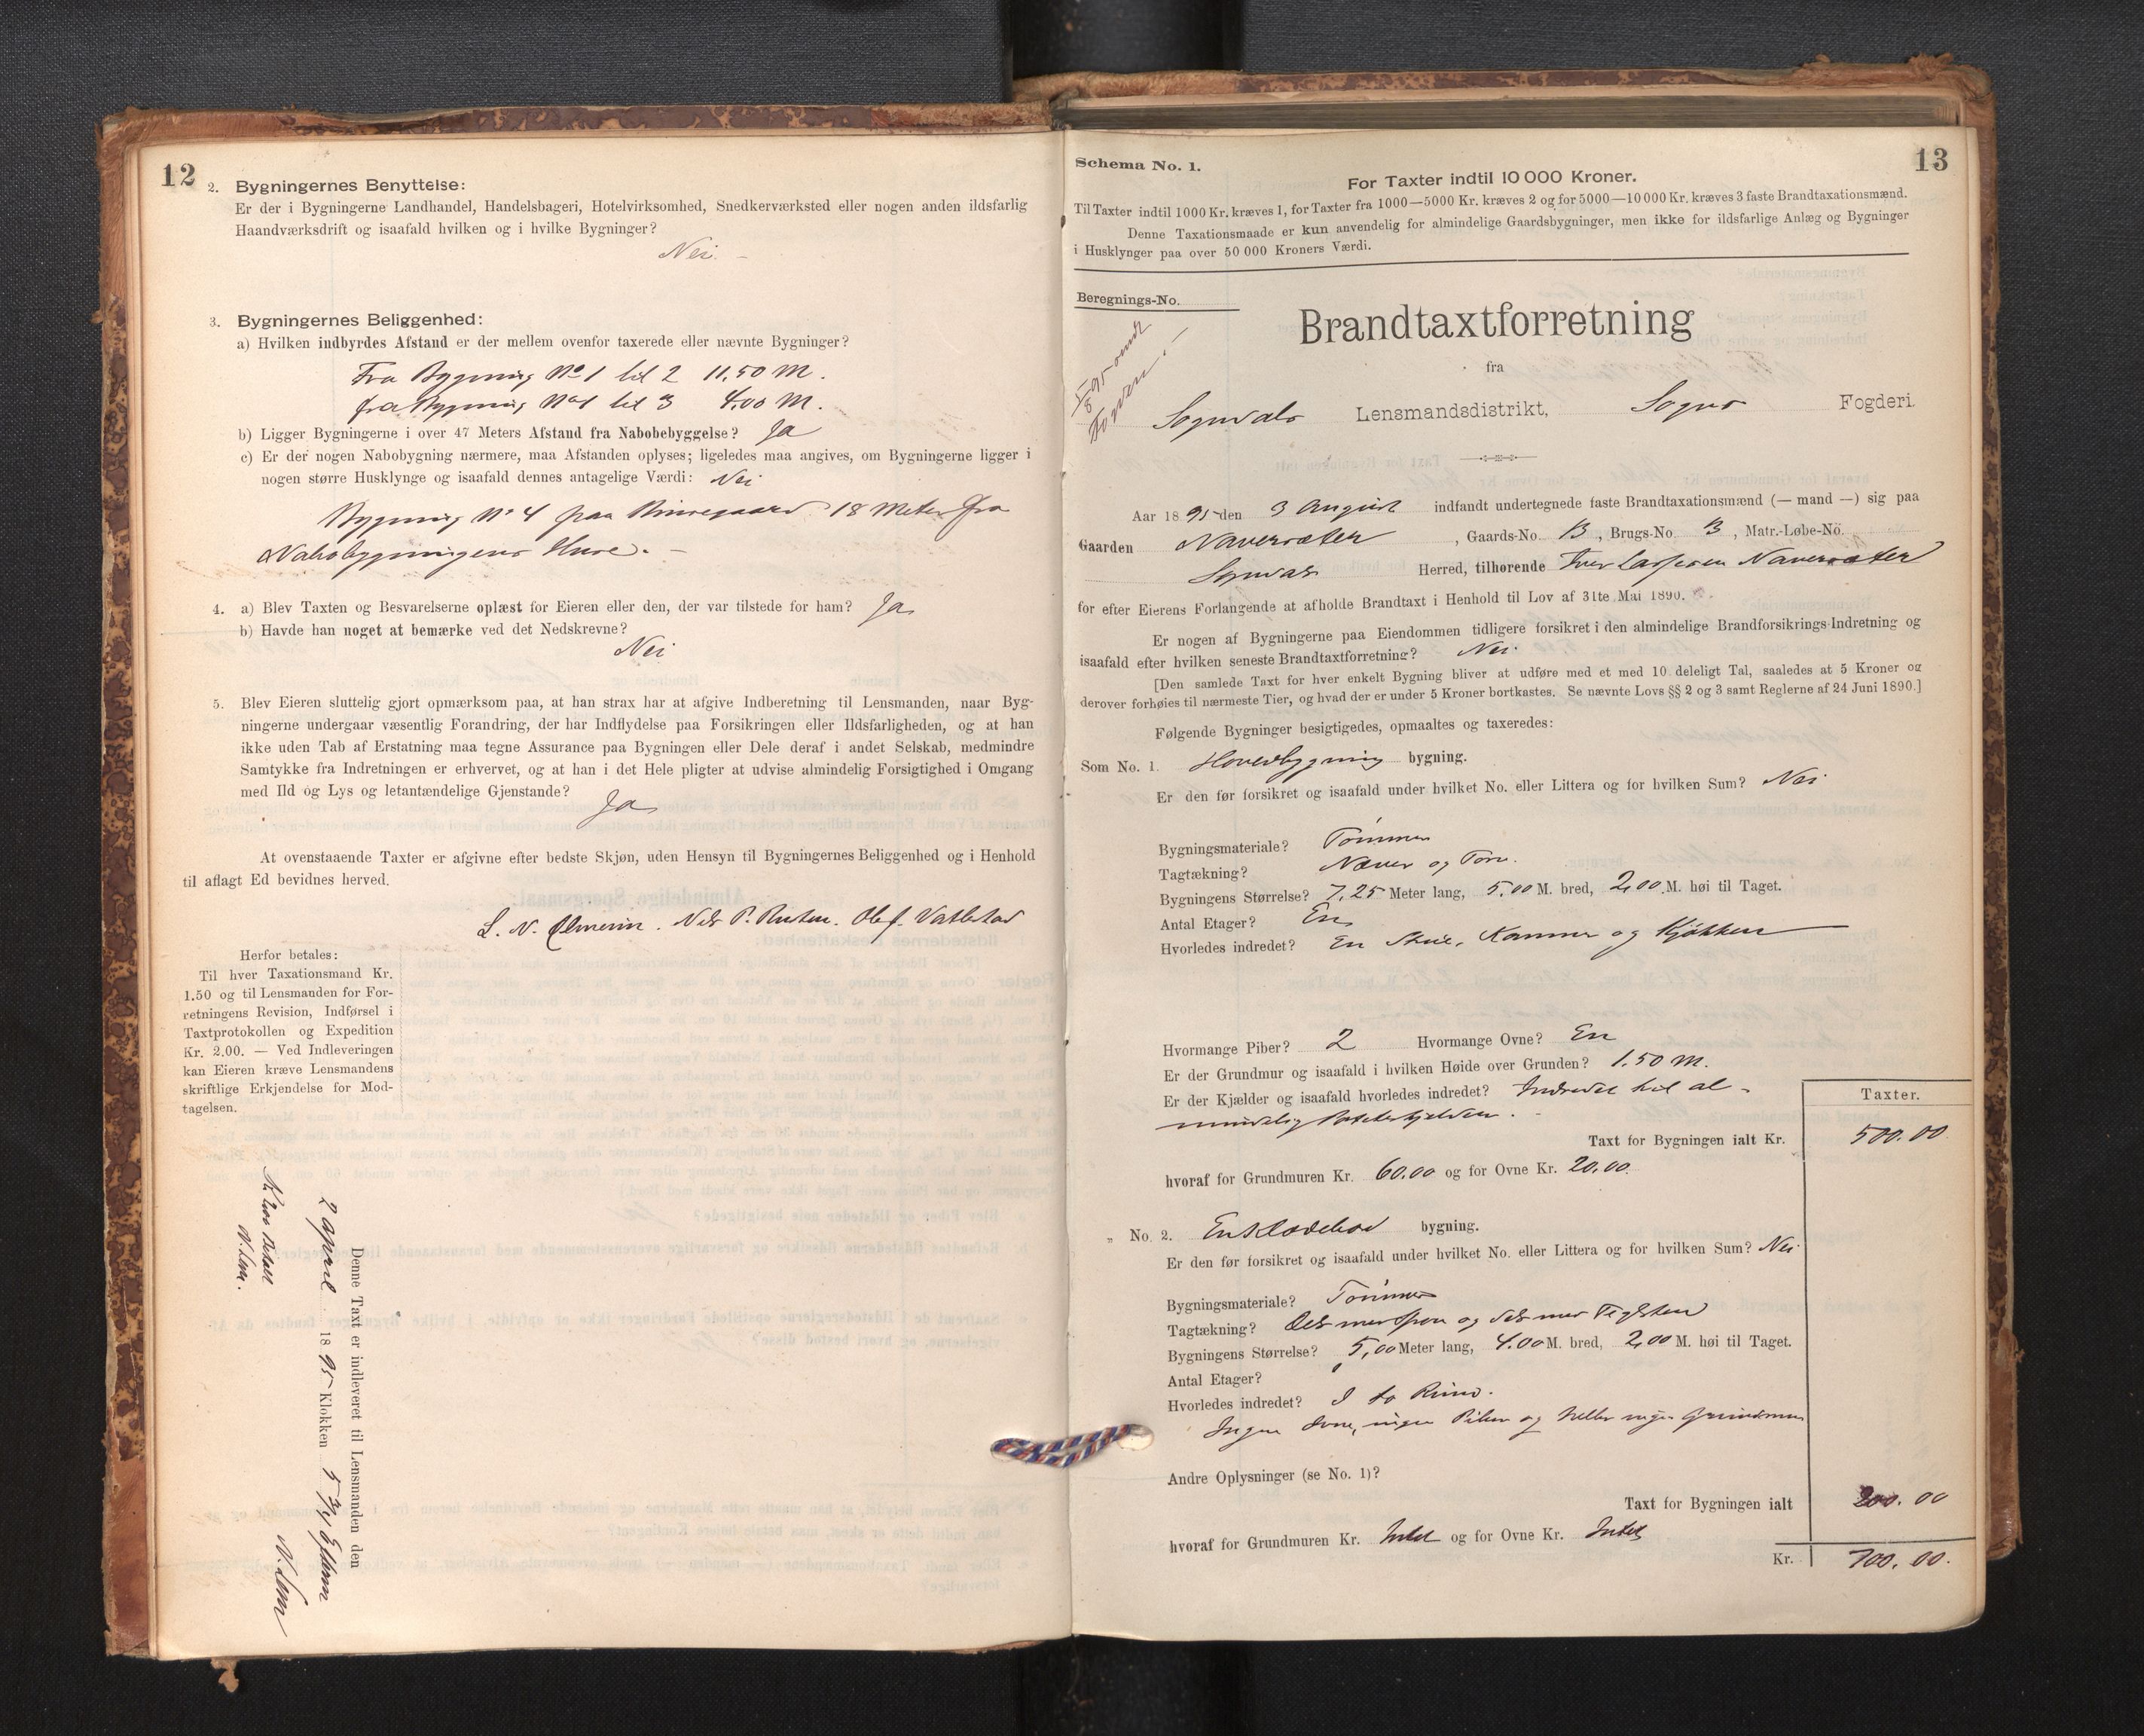 12
2. Bygningernes Benyttelse:
Er der i Bygningerne Landhandel, Handelsbageri, Hotelvirksomhed, Snedkerværksted eller nogen anden ildsfarlig
Haandværksdrift og isaafald hvilken og i hvilke Bygninger?
Nei. –
3. Bygningernes Beliggenhed:
a) Hvilken indbyrdes Afstand er der mellem ovenfor taxerede eller nævnte Bygninger?
Fra Bygning No 1 til 2 11,50 M.
fra Bygning No 1 til 3 4,00 M.
b) Ligger Bygningerne i over 47 Meters Afstand fra Nabobebyggelse? Ja
c) Er der nogen Nabobygning nærmere, maa Afstanden oplyses; ligeledes maa angives, om Bygningerne ligger i
nogen større Husklynge og isaafald dennes antagelige Værdi: Nei
Bygning No 4 paa 18 Meter fra
Nabobygningens Huse. –
4. a) Blev Taxten og Besvarelserne oplæst for Eieren eller den, der var tilstede for ham? Ja
b) Havde han noget at bemærke ved det Nedskrevne?
Nei
5. Blev Eieren sluttelig gjort opmærksom paa, at han strax har at afgive Indberetning til Lensmanden, naar Byg-
ningerne undergaar væsentlig Forandring, der har Indflydelse paa Forsikringen eller Ildsfarligheden, og at han
ikke uden Tab af Erstatning maa tegne Assurance paa Bygningen eller Dele deraf i andet Selskab, medmindre
Samtykke fra Indretningen er erhvervet, og at han i det Hele pligter at udvise almindelig Forsigtighed i Omgang
med Ild og Lys og letantændelige Gjenstande?
Ja
At ovenstaaende Taxter er afgivne efter bedste Skjøn, uden Hensyn til Bygningernes Beliggenhed og i Henhold
til aflagt Ed bevidnes herved.
L. N. Nils P. Olef.
Herfor betales:
Til hver Taxationsmand Kr.
1.50 og til Lensmanden for For-
retningens Revision, Indførsel i
Taxtprotokollen og Expedition
Kr. 2.00. — Ved Indleveringen
kan Eieren kræve Lensmandens
skriftlige Erkjendelse for Mod-
tagelsen.
Denne Taxt er indleveret til Lensmanden den
2 april 1895 Klokken 5
13
Schema No. 1.
For Taxter indtil 10 000 Kroner.
Til Taxter indtil 1000 Kr. kræves 1, for Taxter fra 1000—5000 Kr. kræves 2 og for 5000—10 000 Kr. kræves 3 faste Brandtaxationsmænd.
Denne Taxationsmaade er kun anvendelig for almindelige Gaardsbygninger, men ikke for ildsfarlige Anlæg og Bygninger
i Husklynger paa over 50 000 Kroners Værdi.
Beregnings-No.
Brandtaxtforretning
fra
Sogndals Lensmandsdistrikt, Sogns Fogderi.
Aar 1895 den 3 August indfandt undertegnede faste Brandtaxationsmænd (— mand —) sig paa
Gaarden Naversæter, Gaards-No. 13, Brugs-No. 3, Matr.-Løbe-No.
Sogndals Herred, tilhørende Iver Larssen Naversæter
for efter Eierens Forlangende at afholde Brandtaxt i Henhold til Lov af 31te Mai 1890.
Er nogen af Bygningerne paa Eiendommen tidligere forsikret i den almindelige Brandforsikrings-Indretning og
isaafald efter hvilken seneste Brandtaxtforretning? Nei.
[Den samlede Taxt for hver enkelt Bygning bliver at udføre med et med 10 deleligt Tal, saaledes at 5 Kroner og
derover forhøies til nærmeste Tier, og hvad der er under 5 Kroner bortkastes. Se nævnte Lovs §§ 2 og 3 samt Reglerne af 24 Juni 1890.]
Følgende Bygninger besigtigedes, opmaaltes og taxeredes:
Som No. 1. Hovedbygning bygning.
Er den før forsikret og isaafald under hvilket No. eller Littera og for hvilken Sum? Nei
Bygningsmateriale? Tømmer
Tagtækning? Næver og Torv.
Bygningens Størrelse? 7,25 Meter lang, 5,00 M. bred, 2,00 M. høi til Taget.
Antal Etager? En
Hvorledes indredet? En Stue, Kammer og Kjøkken
Hvormange Piber? 2 Hvormange Ovne? En
Er der Grundmur og isaafald i hvilken Høide over Grunden? 1.50 M.
Er der Kjælder og isaafald hvorledes indredet? Indredet til al-
mindelig Potetkjelder.
Taxter.
Taxt for Bygningen ialt Kr. 500.00
hvoraf for Grundmuren Kr. 60.00 og for Ovne Kr. 20.00.
„ No. 2. bygning.
Er den før forsikret og isaafald under hvilket No. eller Littera og for hvilken Sum? Nei
Bygningsmateriale? Tømmer
Tagtækning? Dels med Spon og dels med Teglsten
Bygningens Størrelse? 5,00 Meter lang, 4.00 M. bred, 2,00 M. høi til Taget.
Antal Etager?
Hvorledes indredet? I to Rum.
Ingen Ovne, ingen Piber og heller ingen Grundmur
Andre Oplysninger (se No. 1)?
Taxt for Bygningen ialt 200.00
hvoraf for Grundmuren Kr. Intet og for Ovne Kr. Intet
Kr. 700.00.